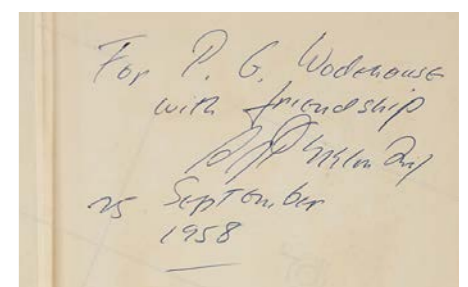 For P. G. Wodehouse
with friendship
25 September
1958